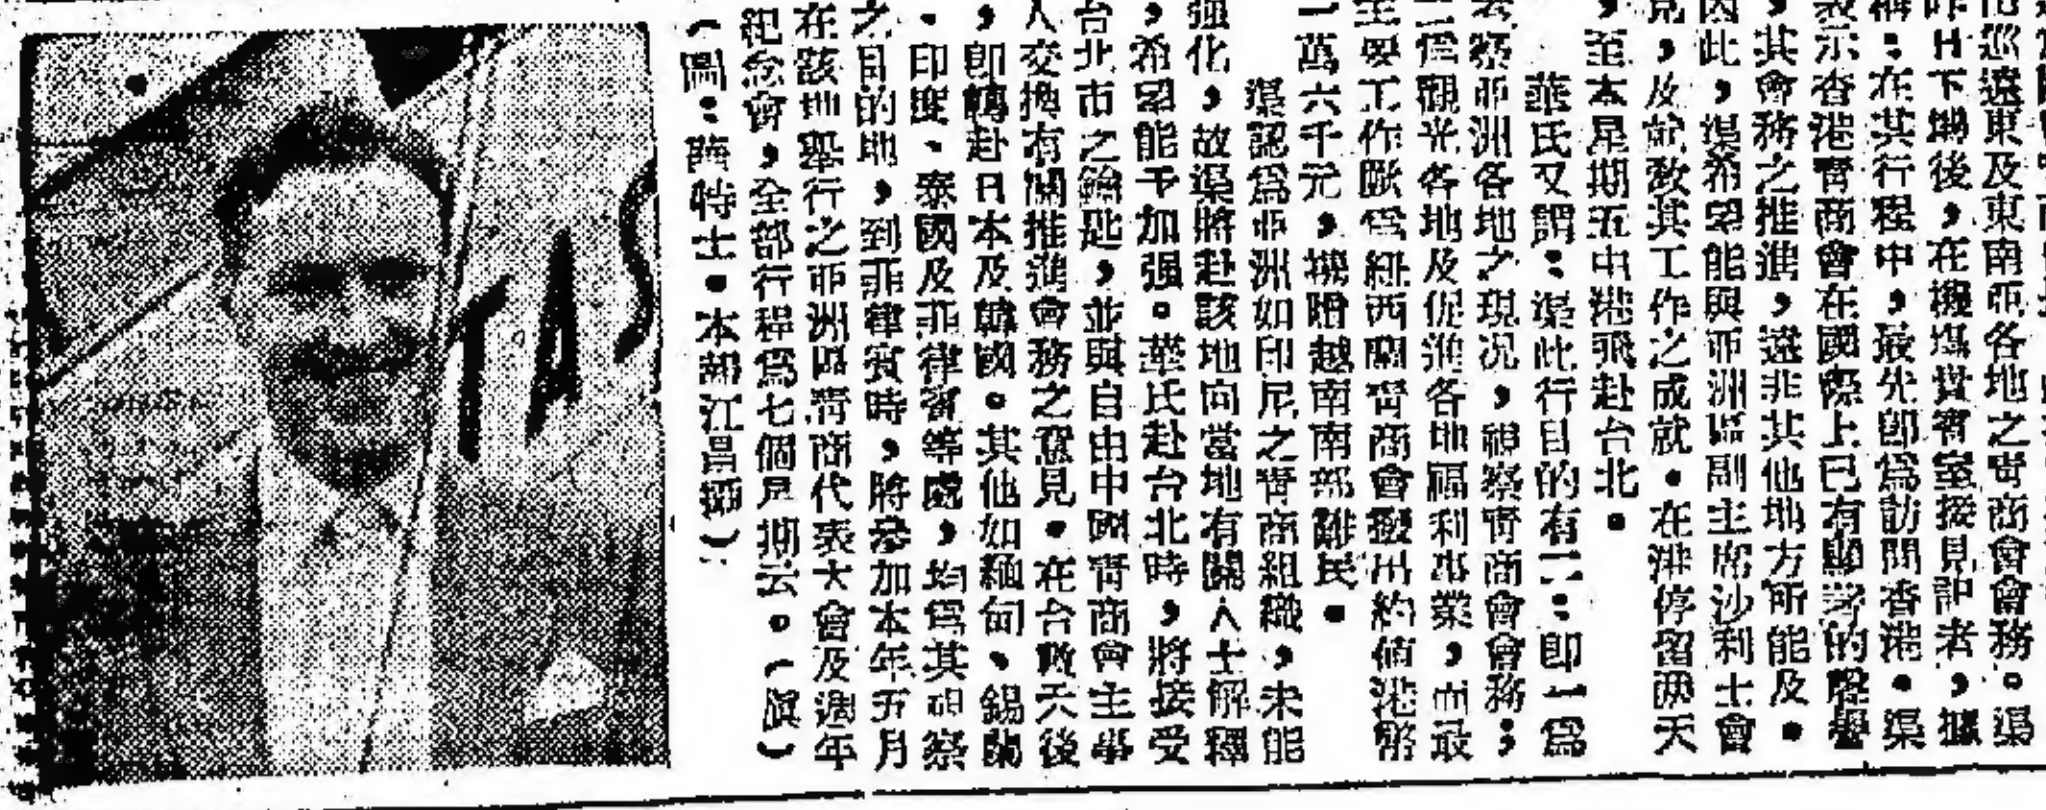 巡遠東及東南亞各地之青商會會務。渠
昨日下機後,在機場貴賓室接見記者,據
稱:在其行程中,最先即爲訪問香港。渠
表示香港青商會在國際上已有顯著的聲譽
,其會務之推進,遠非其他地方所能及。
因此,渠希望能與亞洲區副主席沙利士會
見,及說教其工作之成就。在港停留兩天
,至本星期五由港飛赴台北。
華氏又謂:渠此行目的有二:即一爲
視察亞洲各地之現况,視察青商會會務;
二爲觀光各地及促進各地福利事業,而最
主要工作厥爲紐西蘭青商會撥出約値港幣
一萬六千元,捐贈越南南部難民。
渠認爲亞洲如印尼之青商組織,未能
强化,故渠將赴該地向當地有關人士解釋
,希望能予加强。華氏赴台北時,將接受
台北市之鑰匙,並與自由中國青商會主事
人交換有關推進會務之意見。在台數天後
,即轉赴日本及韓國。其他如緬甸、錫蘭
、印度、泰國及菲律賓等處,均爲其視察
之目的地,到菲律賓時,將參加本年五月
在該地舉行之亞洲區青商代表大會及週年
紀念會,全部行程爲七個星期云。(旗)
(圖:薛特士。本報江昌攝)
TAS